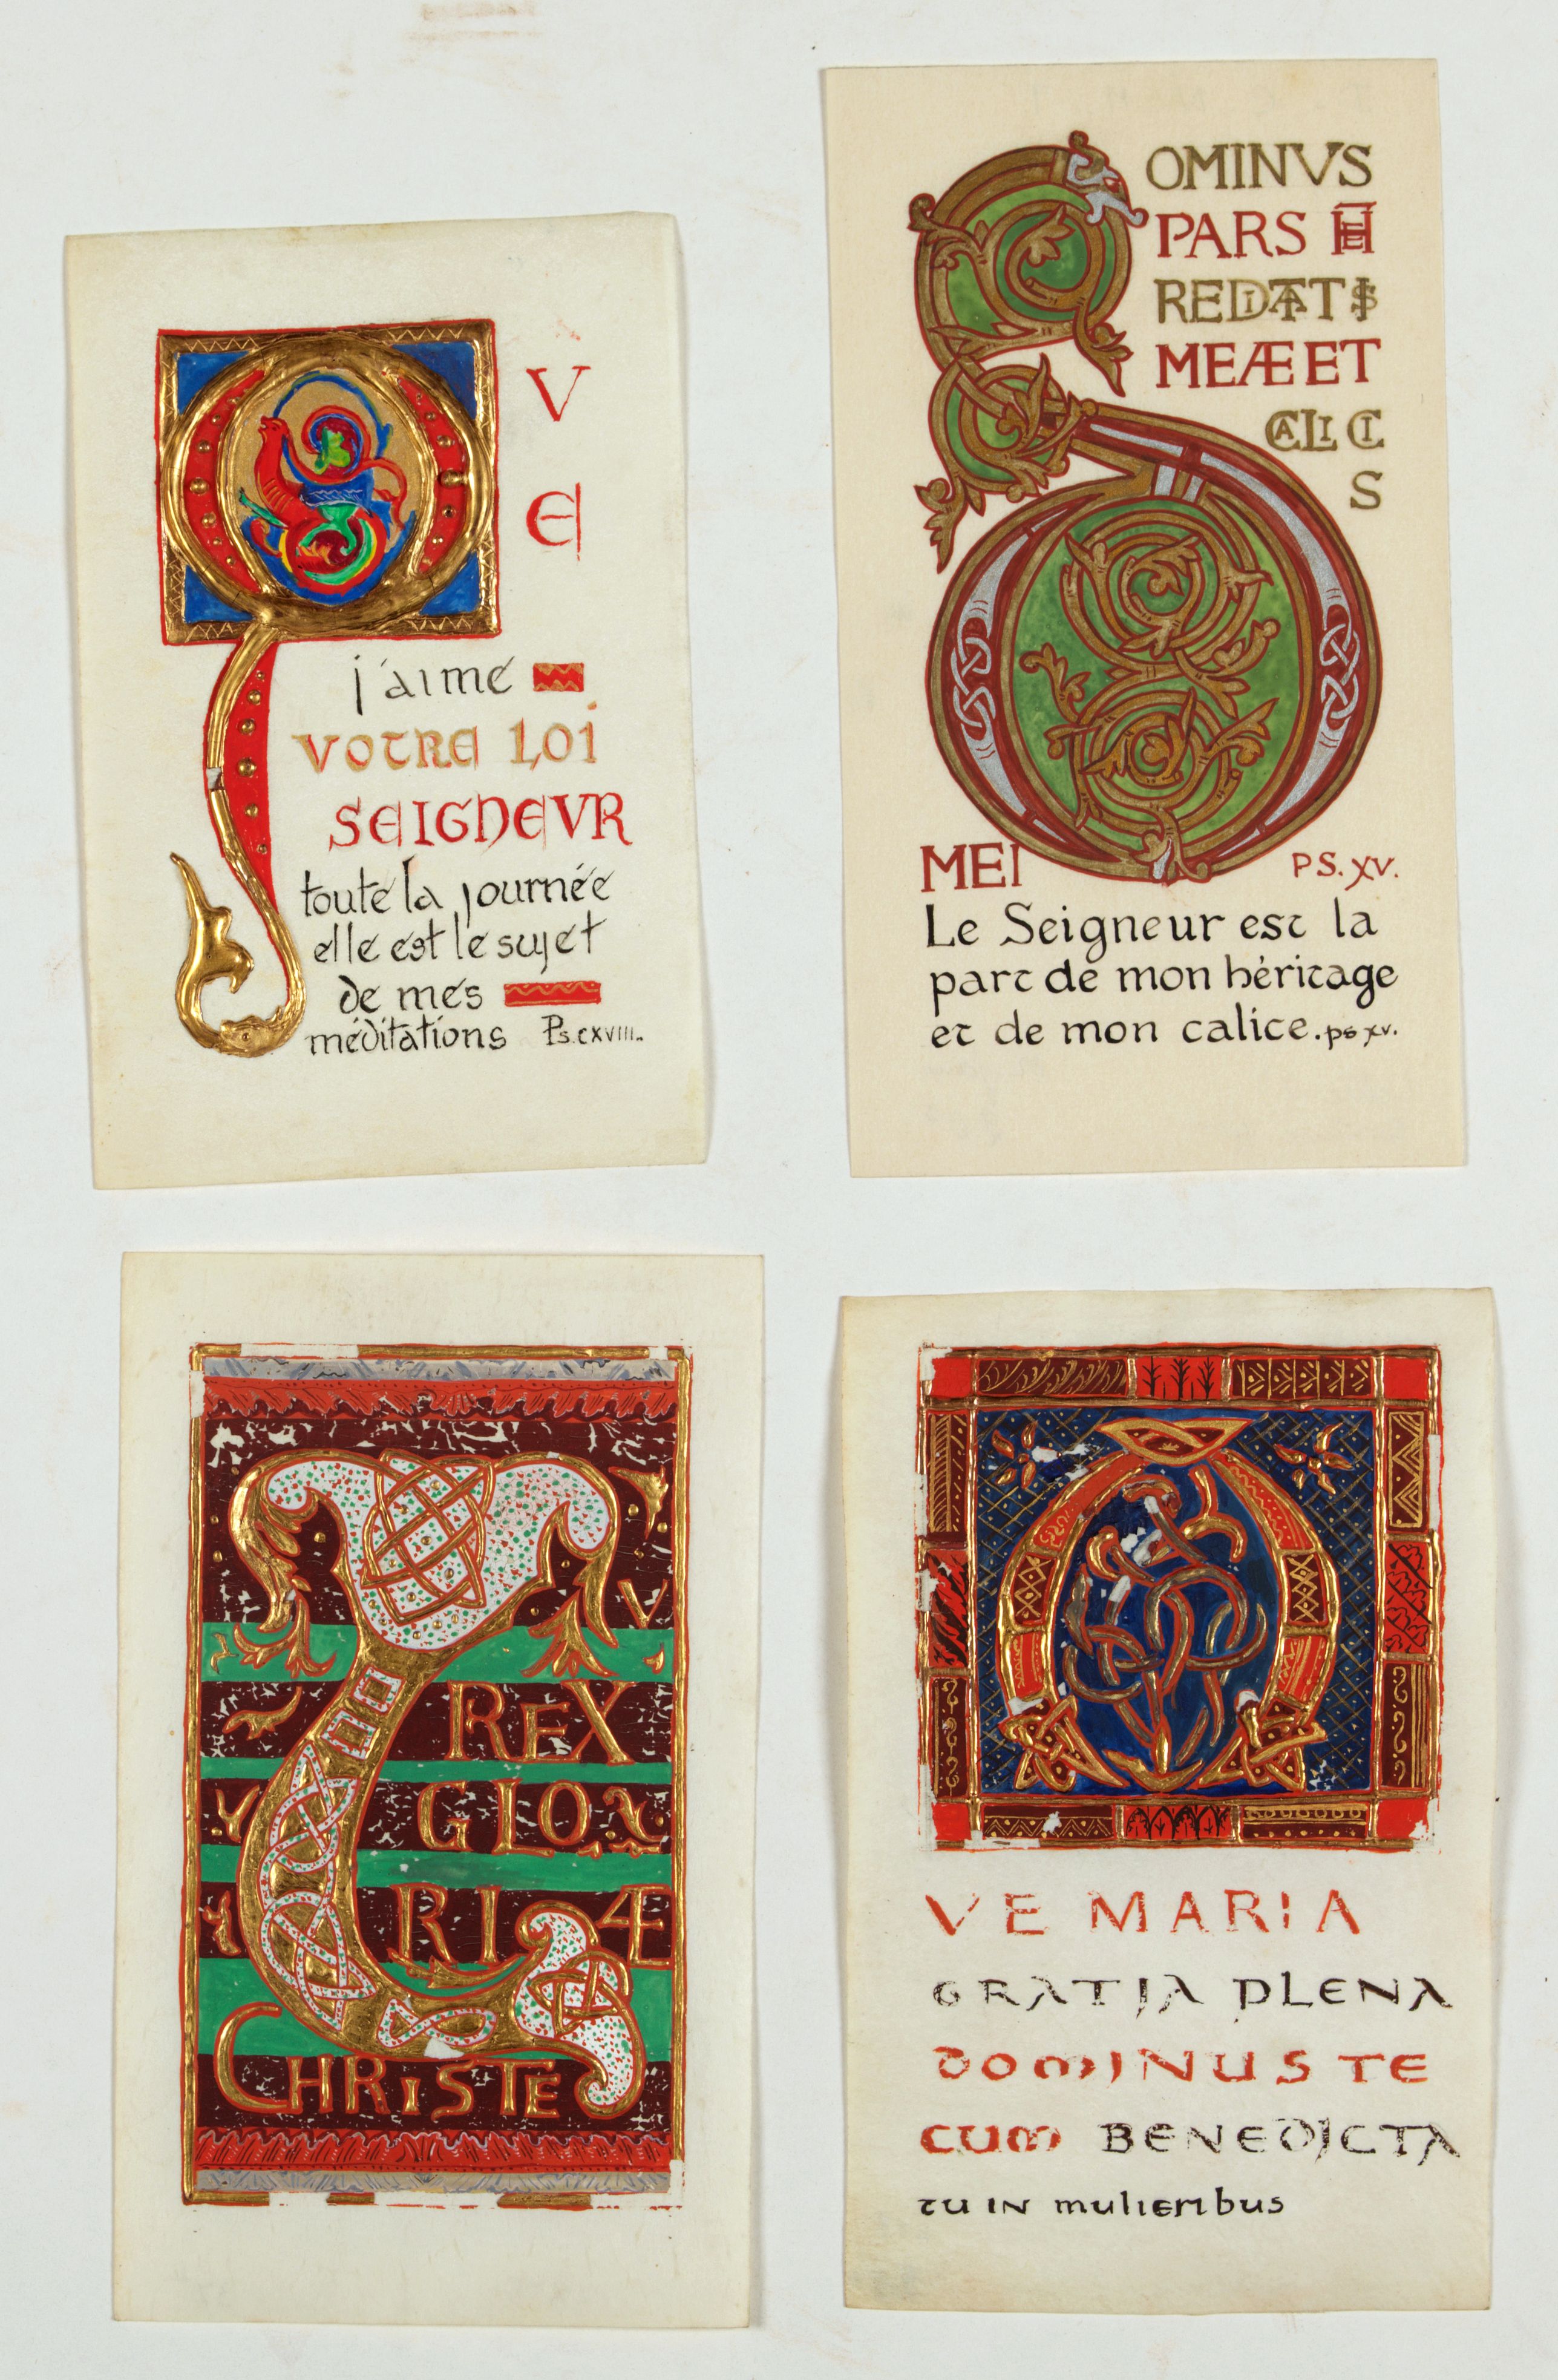 QVE
j'aime
VOTRE LOI
SEIGNEVR
toute la journée
elle est le sujet
de mes
méditations Ps.CXVIII..
DOMINVS
PARS HE
REDITATIS
MEÆ ET
CALICI
S
MEI PS.XV.
Le Seigneur est la
part de mon héritage
et de mon calice. ps xv.
TV
REX
GLO
RIÆ
CHRISTE
AVE MARIA
GRATIA PLENA
DOMINUS TE
CUM BENEDICTA
TU IN mulieribus